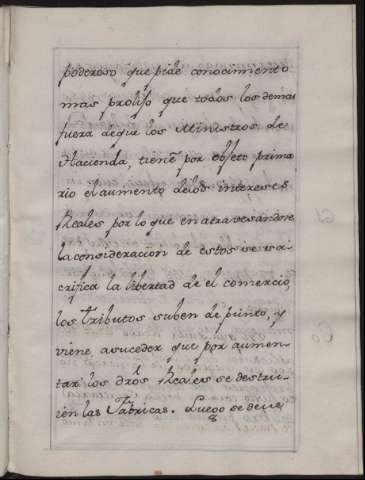 poderoso que pide conocimiento
mas prolijo que todos los demas
fuera deque los Ministros de
Hacienda, tienẽ por objeto prima
rio el aumento delos intereses
Reales por lo que en atravesandose
la consideracion de estos se sa-
crifica la libertad de el comercio,
los tributos suben de punto, y
viene, asuceder que por aumen-
tar los dros Reales se destru-
ien las Fabricas. Luego se deve